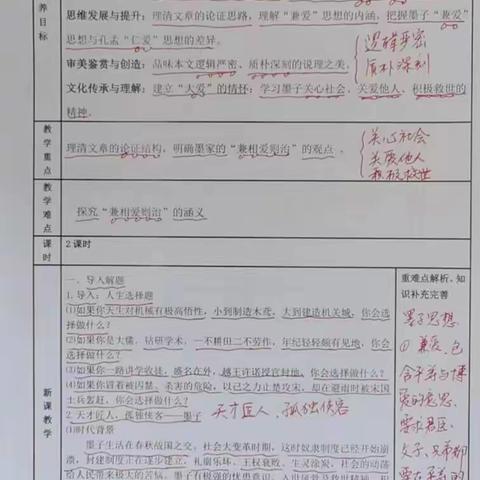 养
目
标
思维发展与提升：理清文章的论证思路，理解“兼爱”思想的内涵，把握墨子“兼爱”
思想与孔孟“仁爱”思想的差异。
审美鉴赏与创造：品味本文逻辑严密、质朴深刻的说理之美。
逻辑严密
质朴深刻
文化传承与理解：建立“大爱”的情怀；学习墨子关心社会、关爱他人、积极救世的
精神。
教
学
重
点
理清文章的论证结构，明确墨家的“兼相爱则治”的观点。
关心社会
关爱他人
积极救世
教
学
难
点
探究“兼相爱则治”的涵义
课
时
2课时
新
课
教
学
一、导入解题
1.导入：人生选择题
⑴如果你天生对机械有极高悟性，小到制造木鸢，大到建造机关城，你会选
择做什么？
⑵如果你是大儒，钻研学术，一不耕田二不劳作，年纪轻轻颇有见地，你会
选择做什么？
⑶如果你一路讲学收徒，盛名在外，越王许诺授官封地，你会选择做什么？
⑷如果你冒着被囚禁、杀害的危险，以已之力止楚攻宋，却在避雨时被宋国
士兵轰赶，你会选择做什么？
2.天才匠人，孤独侠客——墨子
天才匠人、孤独侠客
⑴时代背景
墨子生活在春秋战国之交，社会大变革时期，这时奴隶制度已经开始崩
溃，封建制度正在逐步建立，礼崩乐坏、王权衰败、生灵涂炭，社会的动荡
给人民带来极大的苦痛。墨子有极强的忧患意识
重难点解析、知
识补充完善
墨子思想
①兼爱，包
含平等与博
爱的意思，
要求君臣、
父子、兄弟都
要在平等的